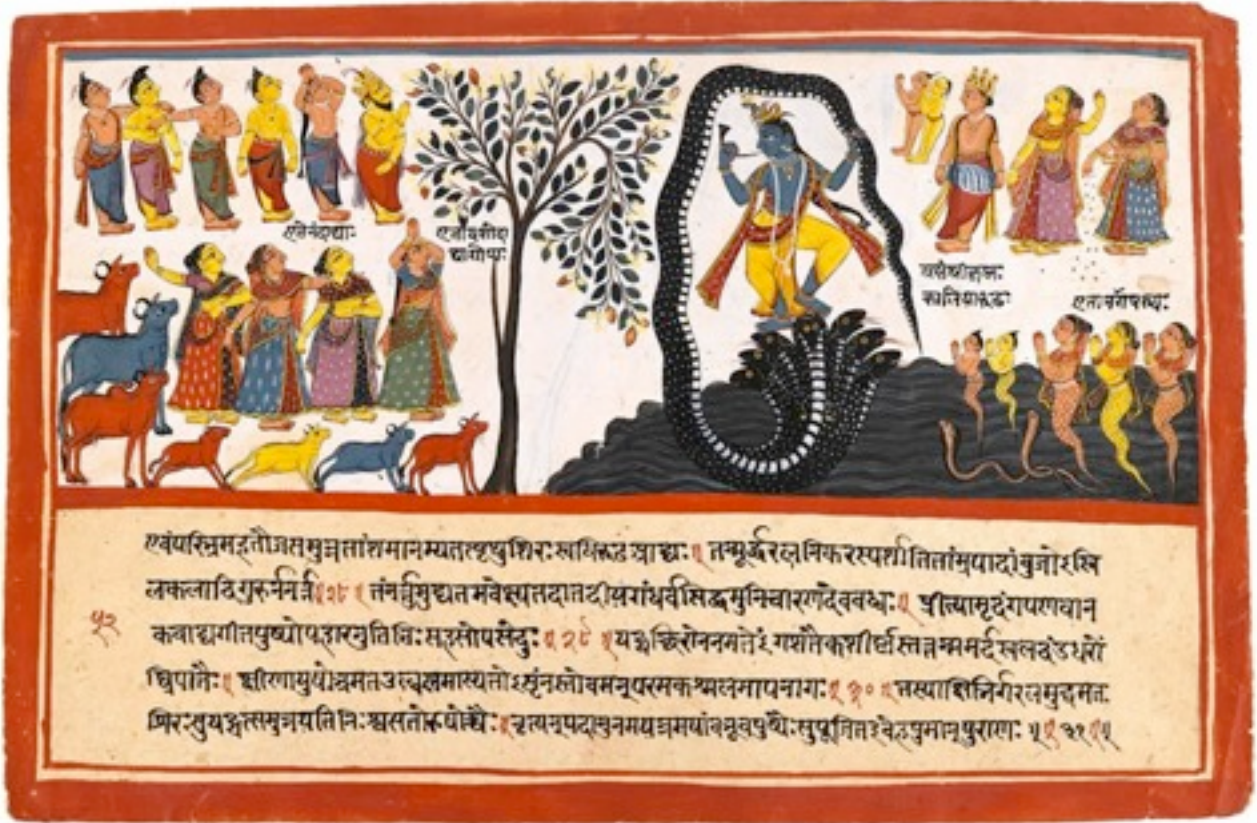 एतेनंदाद्याः
एतायशोदा
द्यागोप्यः
श्रीकृष्णः
कालियारूढः
एतानागपत्न्यः
एवंपरिभ्रमहतौजसमुन्नतांशमानम्यतत्पृथुशिरःस्वधिरूढआद्यः॥ तन्मूर्द्धरत्ननिकरस्पर्शातितांम्रपादांबुजोऽखि
लकलादिगुरुर्ननर्त्त॥२८॥ तंनर्त्तुमुद्यतमवेक्ष्यतदातदीयगंधर्वसिद्धमुनिचारणदेववध्वः॥ प्रीत्यामृदंगपणवान
५२
कवाद्यगीतपुष्पोपहारनुतिभिःसहसोपसेदुः॥२९॥यद्यच्छिरोननमतेंऽगशतैकशीर्ष्णस्तत्तन्ममर्दखलदंडधरों
घ्रिपातैः॥ क्षीणायुषोभ्रमतउल्बणमास्यतोऽसृंनस्तोवमन्परमकश्मलमापनागः॥३०॥तस्याक्षिभिर्गरलमुद्वमतः
शिरःसुयद्यत्समुन्नमतिनिःश्वसतोरुषोच्चैः॥नृत्यन्पदानुनमयन्दमयांबभूवपुष्पैःसुपूजितइवेहपुमान्पुराणः॥३१॥